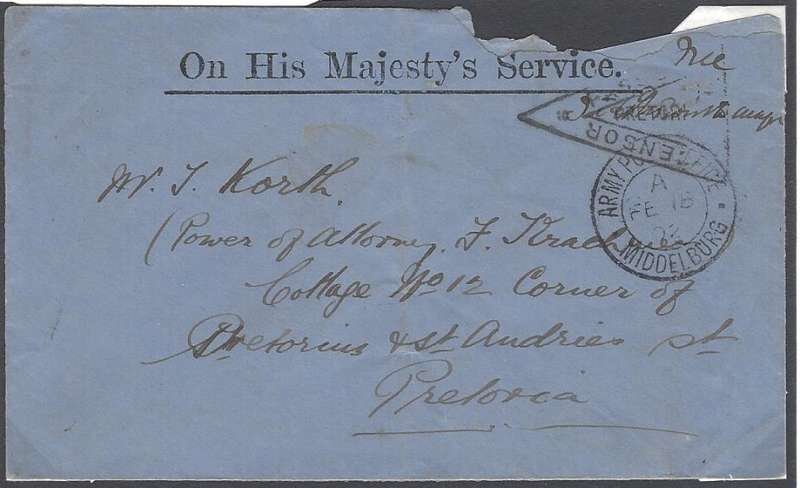 On His Majesty's Service.
CENSOR
ARMY POST OFFICE
A
FE 18
MIDDELBURG
Mr. J. Korth
(Power of Attorney F. Krach
Cottage No 12 Corner of
Pretorius & St Andries St
Pretoria